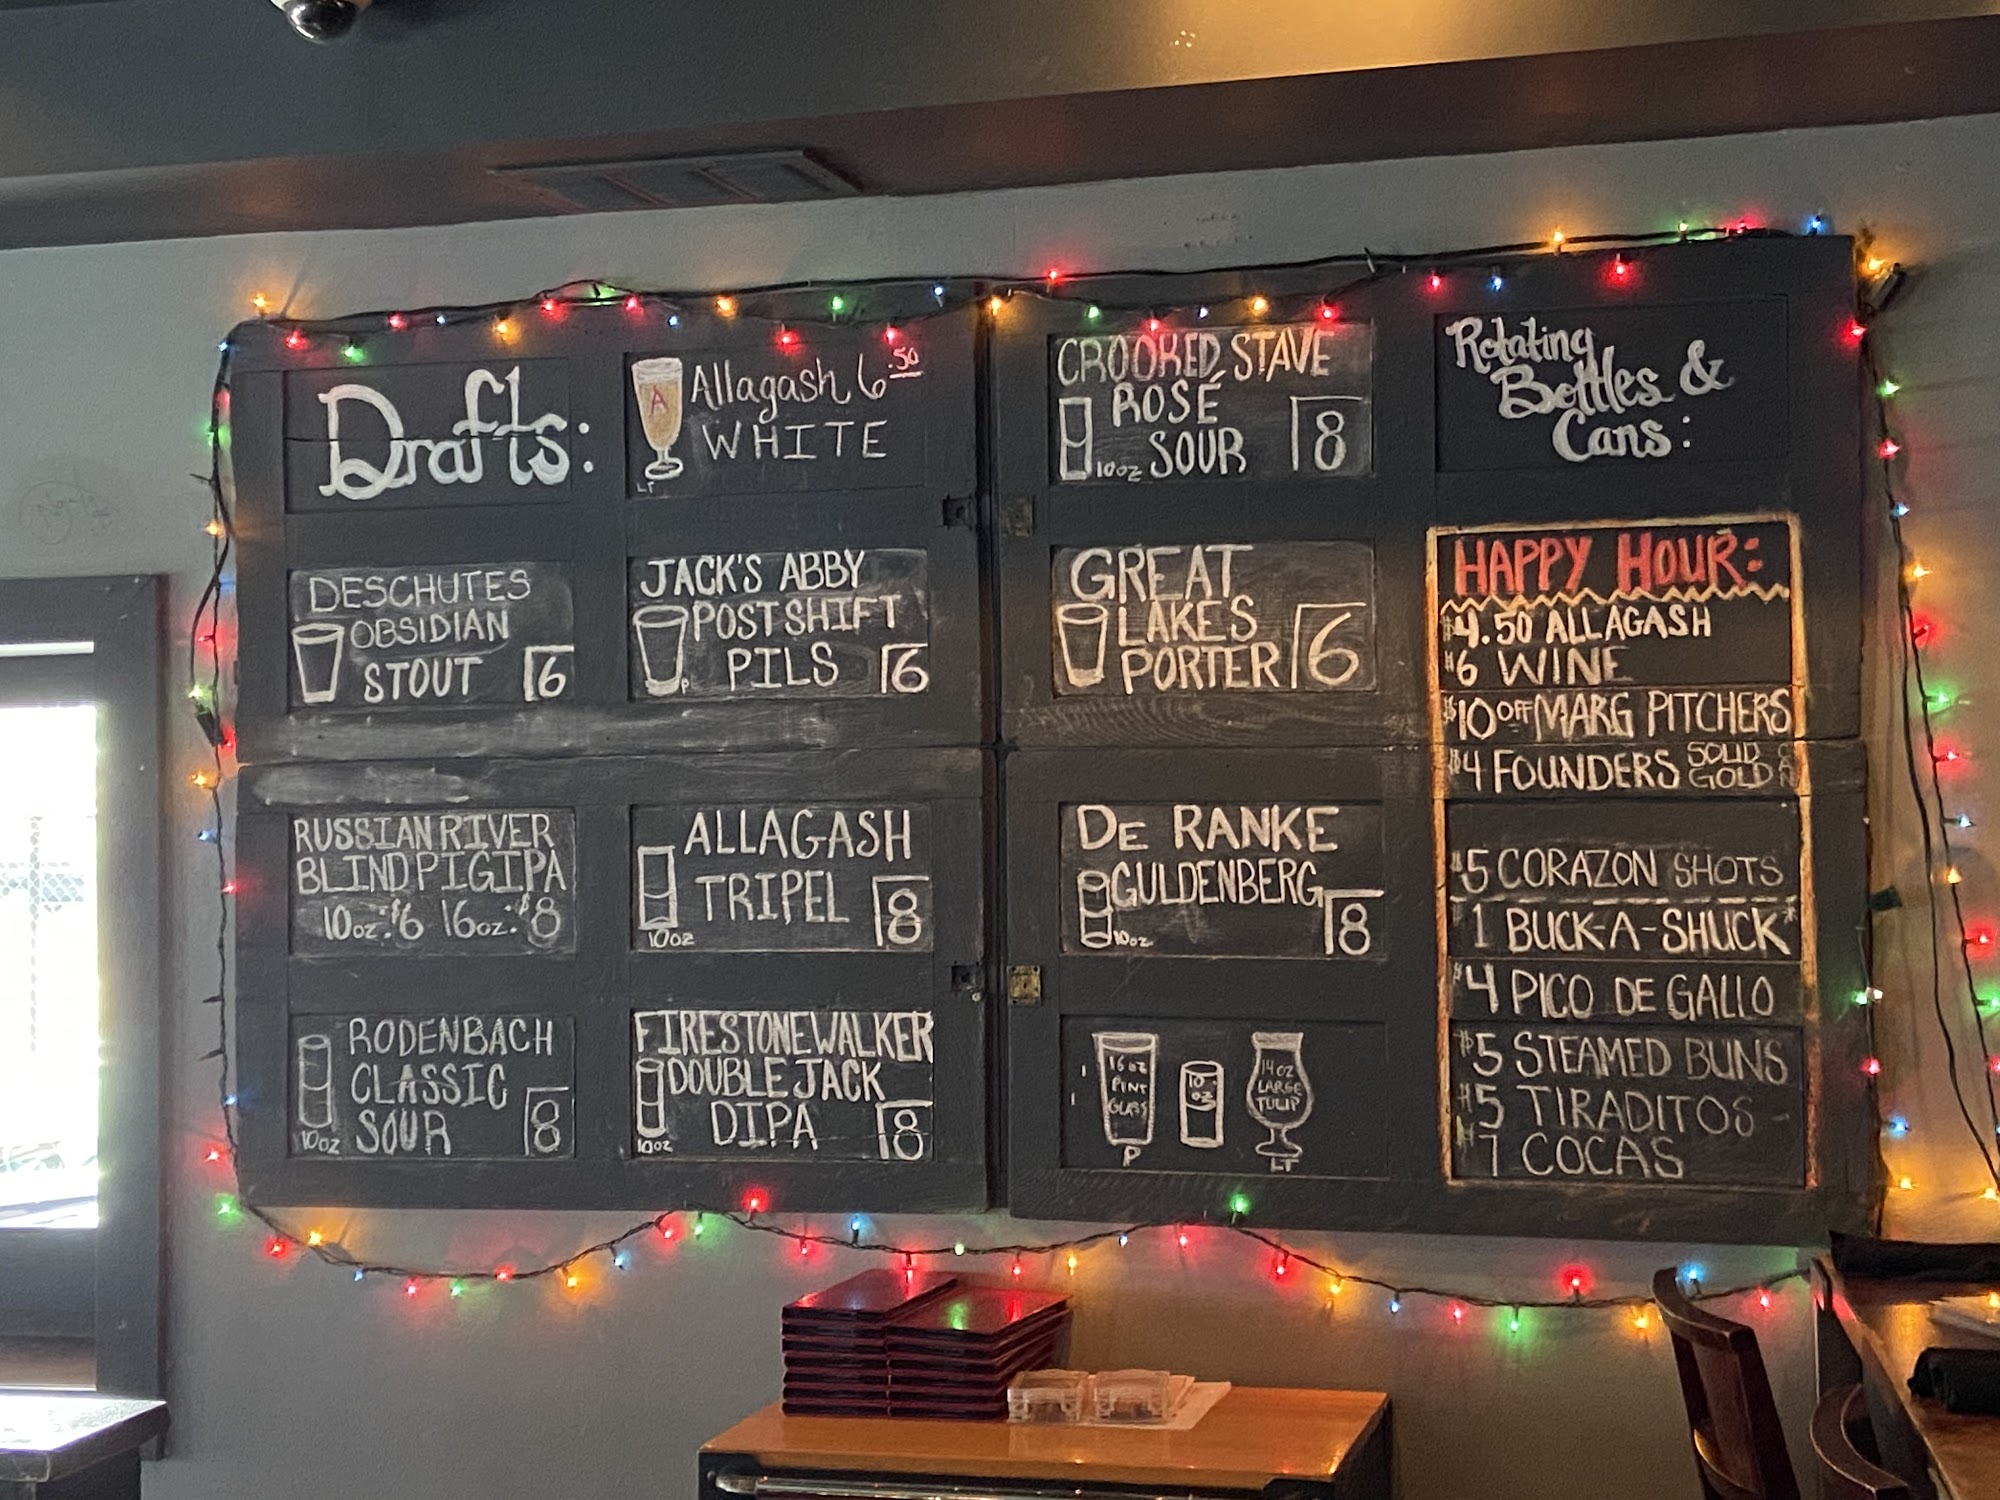 Drafts:
Allagash 6.50
WHITE
A
LT
DESCHUTES
OBSIDIAN
STOUT 6
JACK'S ABBY
POST SHIFT
PILS 6
P
RUSSIAN RIVER
BLIND PIG IPA
10oz: $6 16oz: $8
ALLAGASH
TRIPEL 8
10oz
RODENBACH
CLASSIC
SOUR 8
10oz
FIRESTONE WALKER
DOUBLE JACK
DIPA 8
10oz
CROOKED STAVE
ROSÉ
10oz SOUR 8
GREAT
LAKES
PORTER 6
DE RANKE
GULDENBERG
10oz 8
16oz
PINT
GLASS
P
10
oz
14oz
LARGE
TULIP
LT
Rotating
Bottles &
Cans:
HAPPY HOUR:
$4.50 ALLAGASH
$6 WINE
$10 OFF MARG PITCHERS
$4 FOUNDERS SOLID GOLD CAN
$5 CORAZON SHOTS
$1 BUCK-A-SHUCK*
$4 PICO DE GALLO
$5 STEAMED BUNS
$5 TIRADITOS
$7 COCAS